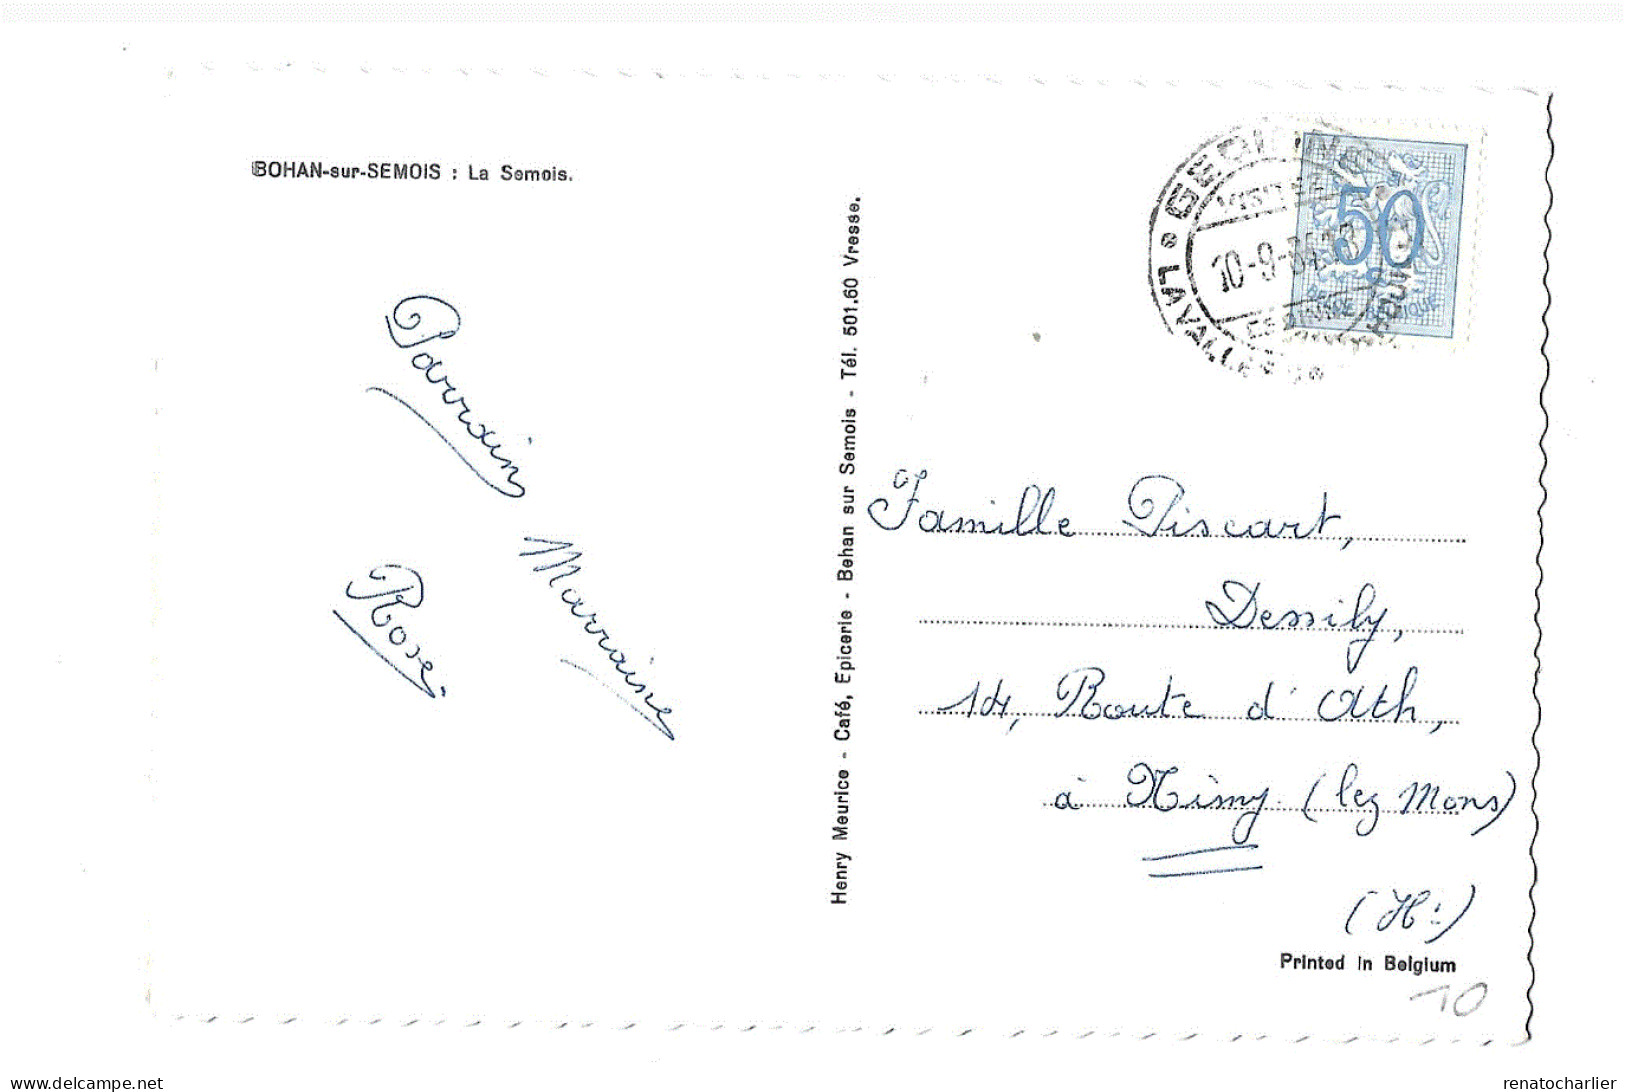 BOHAN-sur-SEMOIS : La Semois.
Parrain
Marraine
Rose.
Henry Meurice - Café, Epicerie - Bohan sur Semois - Tél. 501.60 Vresse.
50
BELGIE-BELGIQUE
10-9-
LA VALLEE
Famille Piscart,
Dessily,
14, Route d'Ath,
à Nimy (lez Mons)
(Ht)
Printed in Belgium
10
delcampe.net
renatocharlier